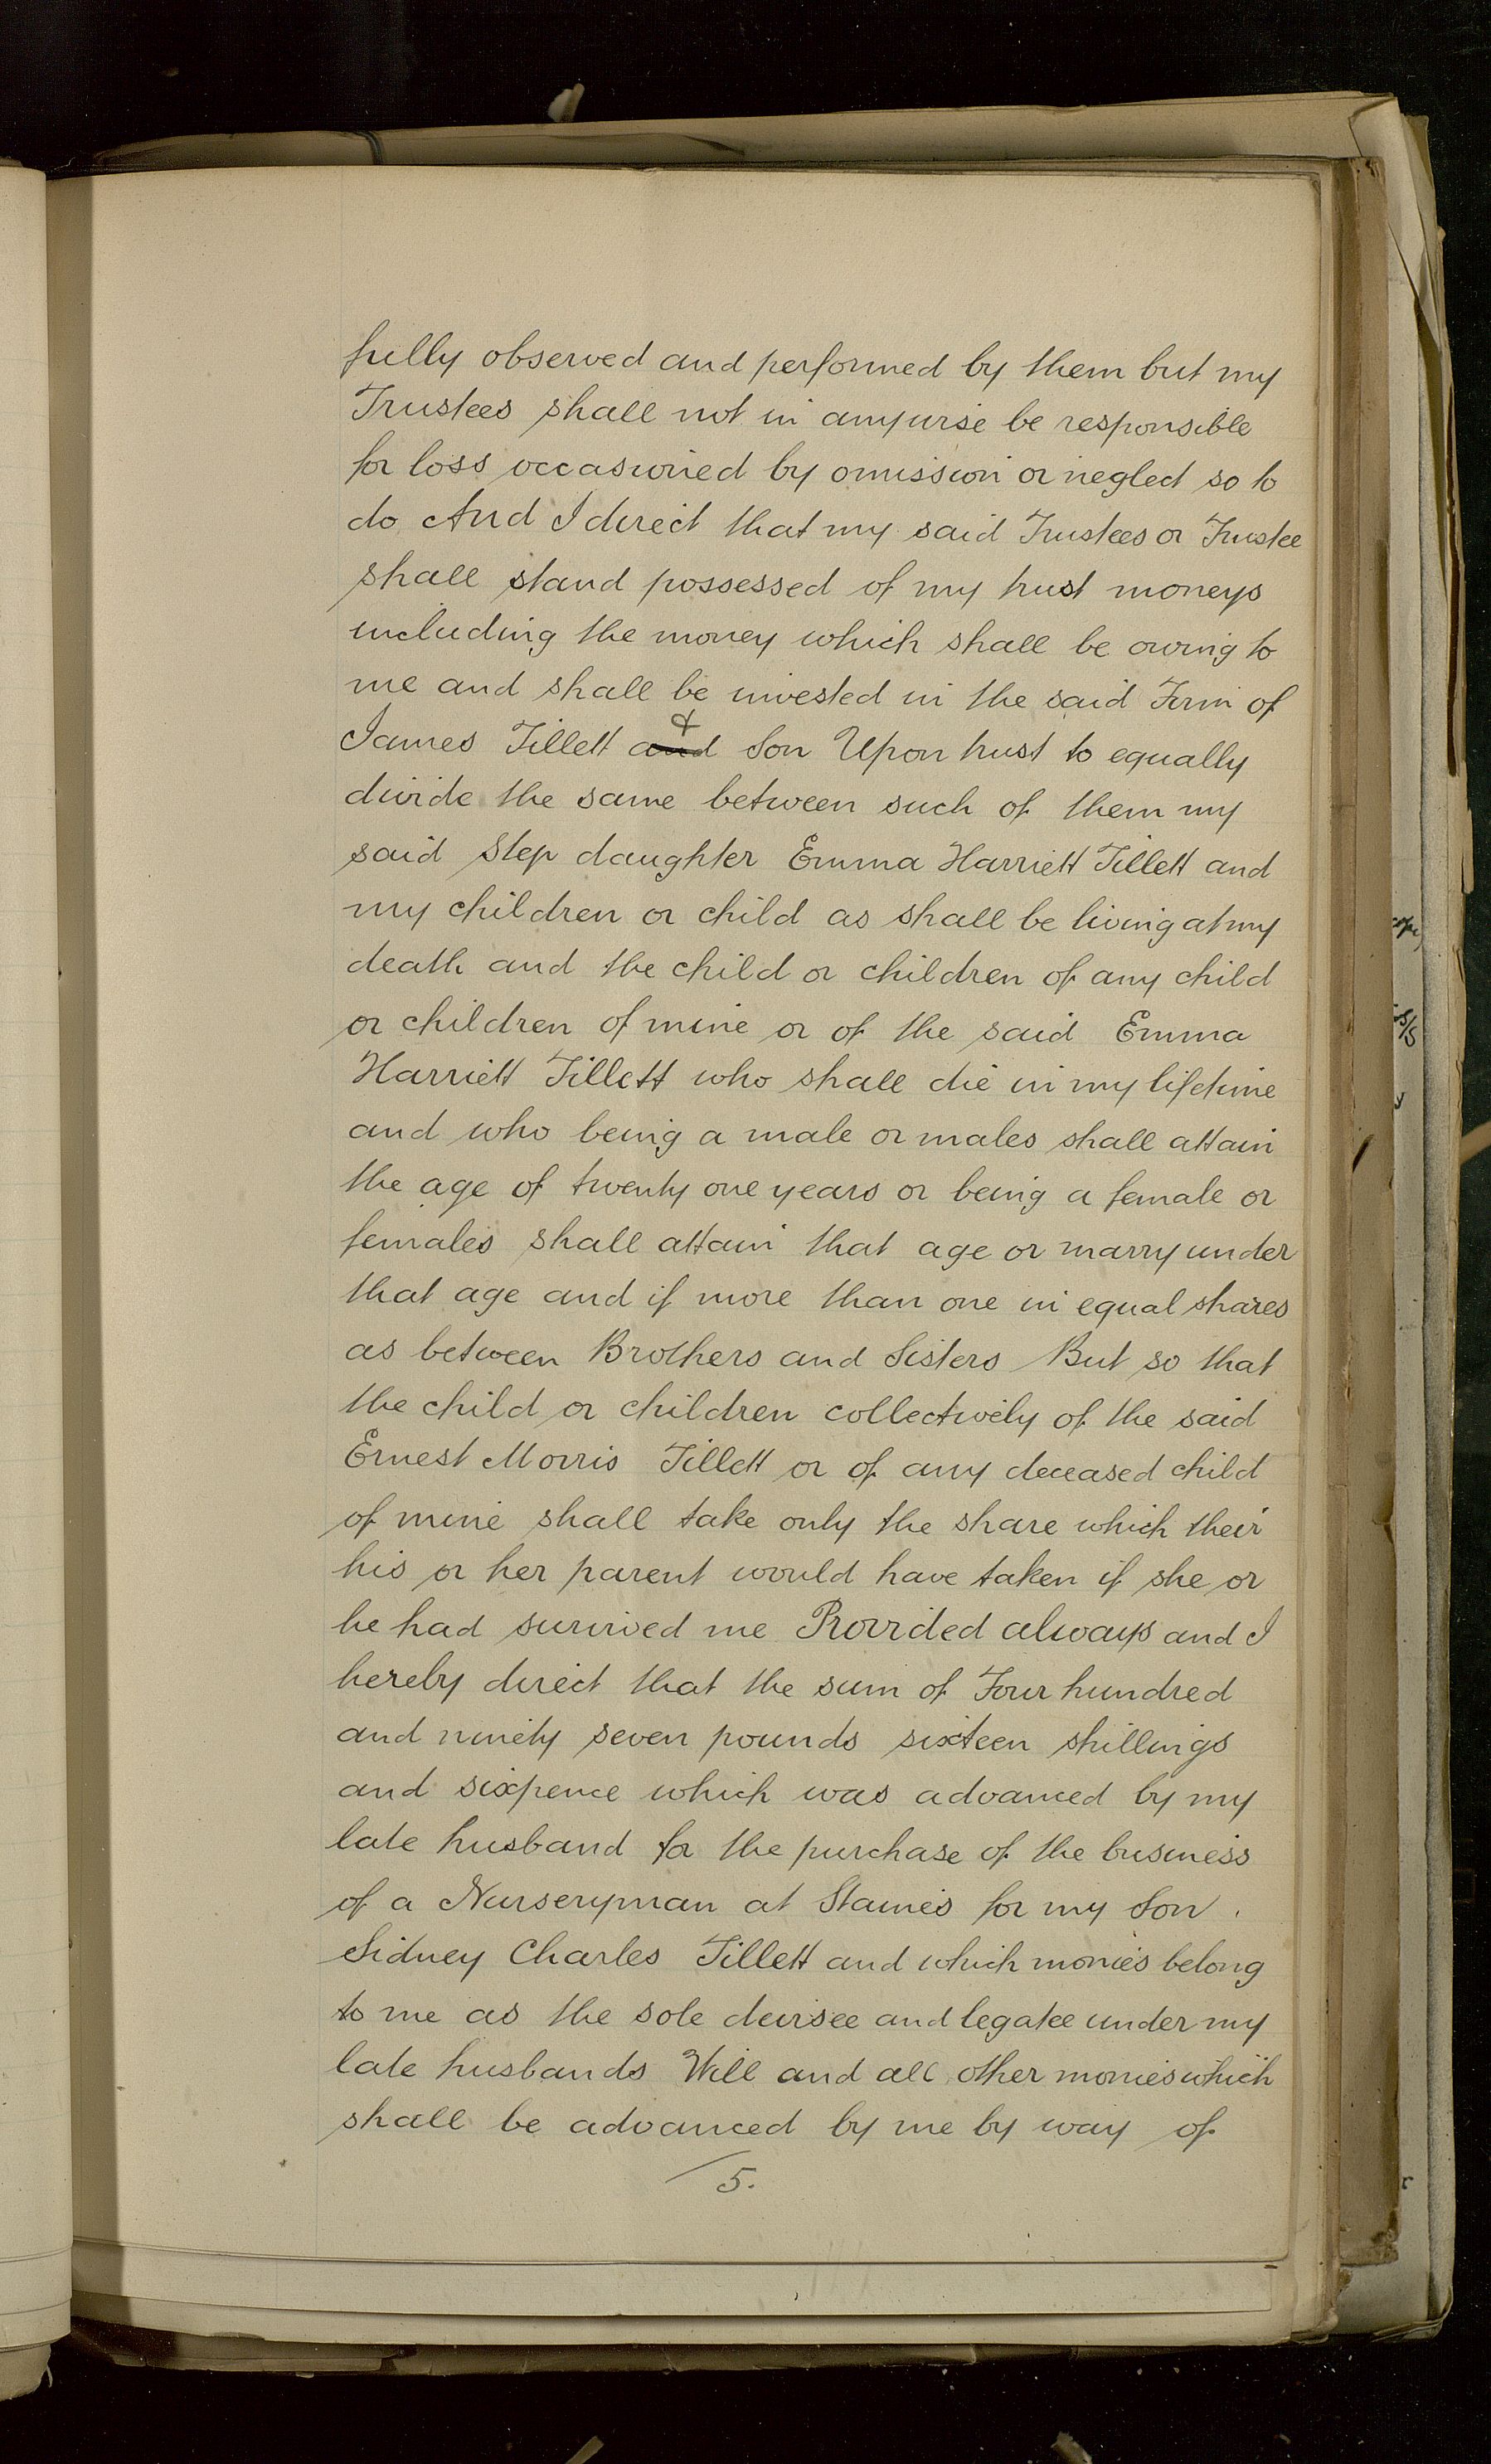 fully observed and performed by them but my
Trustees shall not in anywise be responsible
for loss occasioned by omission or neglect so to
do And I direct that my said Trustees or Trustee
shall stand possessed of my trust moneys
including the money which shall be owing to
me and shall be invested in the said Firm of
&
James Tillett and Son Upon trust to equally
divide the same between such of them my
said Step daughter Emma Harriett Tillett and
my children or child as shall be living at my
death and the child or children of any child
or children of mine or of the said Emma
Harriett Tillett who shall die in my lifetime
and who being a male or males shall attain
the age of twenty one years or being a female or
females shall attain that age or marry under
that age and if more than one in equal shares
as between Brothers and Sisters But so that
the child or children collectively of the said
Ernest Morris Tillett or of any deceased child
of mine shall take only the share which their
his or her parent would have taken if she or
he had survived me Provided always and I
hereby direct that the sum of Four hundred
and ninety seven pounds sixteen shillings
and sixpence which was advanced by my
late husband for the purchase of the business
of a Nurseryman at Staines for my Son
Sidney Charles Tillett and which monies belong
to me as the sole devisee and legatee under my
late husbands Will and all other monies which
shall be advanced by me by way of
5.